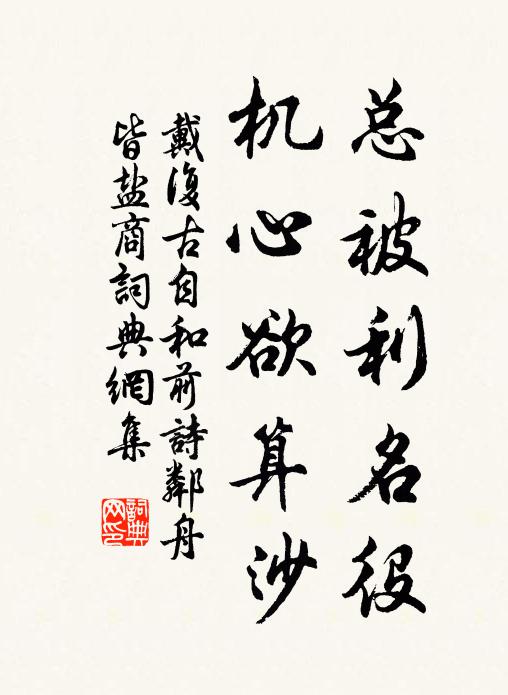 总被利名役
机心欲算沙
戴復古自和前詩鄰舟
皆盐商詞典網集
詞典
网印